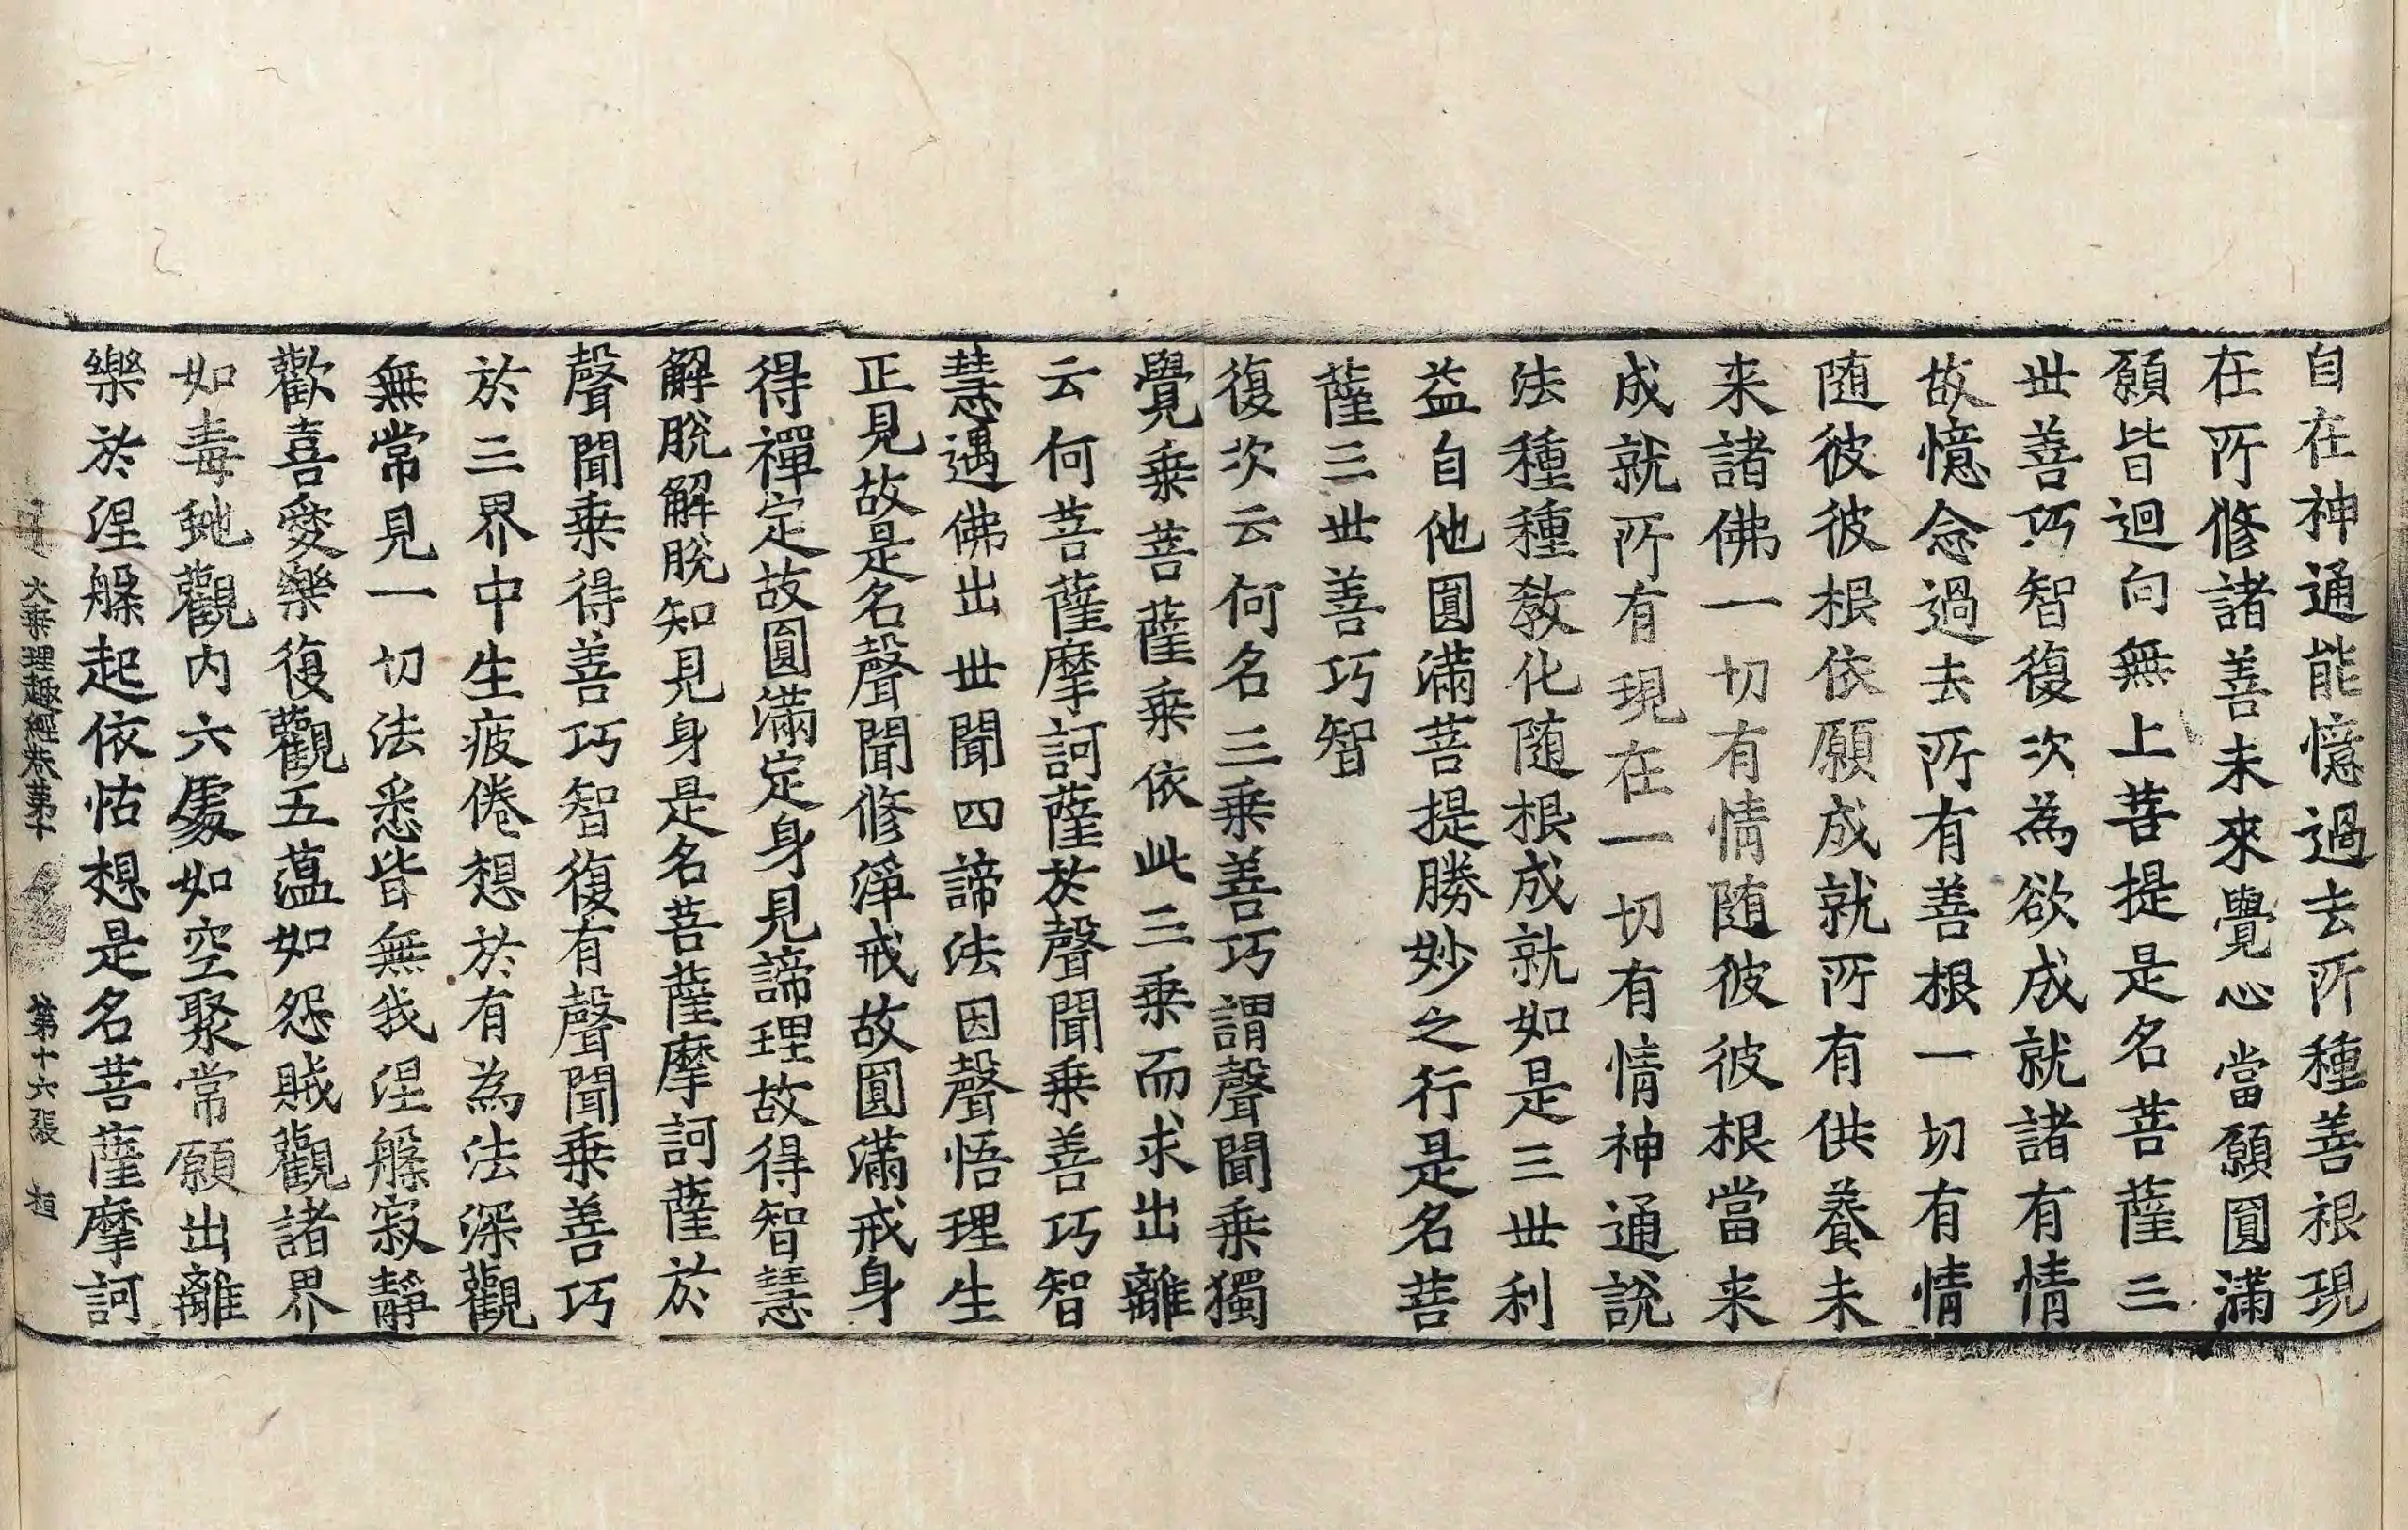 自在神通能憶過去所種善根現
在所修諸善未來覺心當願圓滿
願皆迴向無上菩提是名菩薩三
世善巧智復次為欲成就諸有情
故憶念過去所有善根一切有情
随彼彼根依願成就所有供養未
来諸佛一切有情随彼彼根當来
成就所有現在一切有情神通說
法種種教化随根成就如是三世利
益自他圓滿菩提勝妙之行是名菩
薩三世善巧智
復次云何名三乗善巧謂聲聞乗獨
覺乗菩薩乗依此三乗而求出離
云何菩薩摩訶薩於聲聞乗善巧智
慧遇佛出世聞四諦法因聲悟理生
正見故是名聲聞修淨戒故圓滿戒身
得禪定故圓滿定身見諦理故得智慧
解脫解脫知見身是名菩薩摩訶薩於
聲聞乗得善巧智復有聲聞乗善巧
於三界中生疲倦想於有為法深觀
無常見一切法悉皆無我涅槃寂靜
歡喜愛樂復觀五蕴如怨賊觀諸界
如毒虵觀内六處如空聚常願出離
樂於涅槃起依怙想是名菩薩摩訶
大乗理趣經卷第十 第十六張 桓